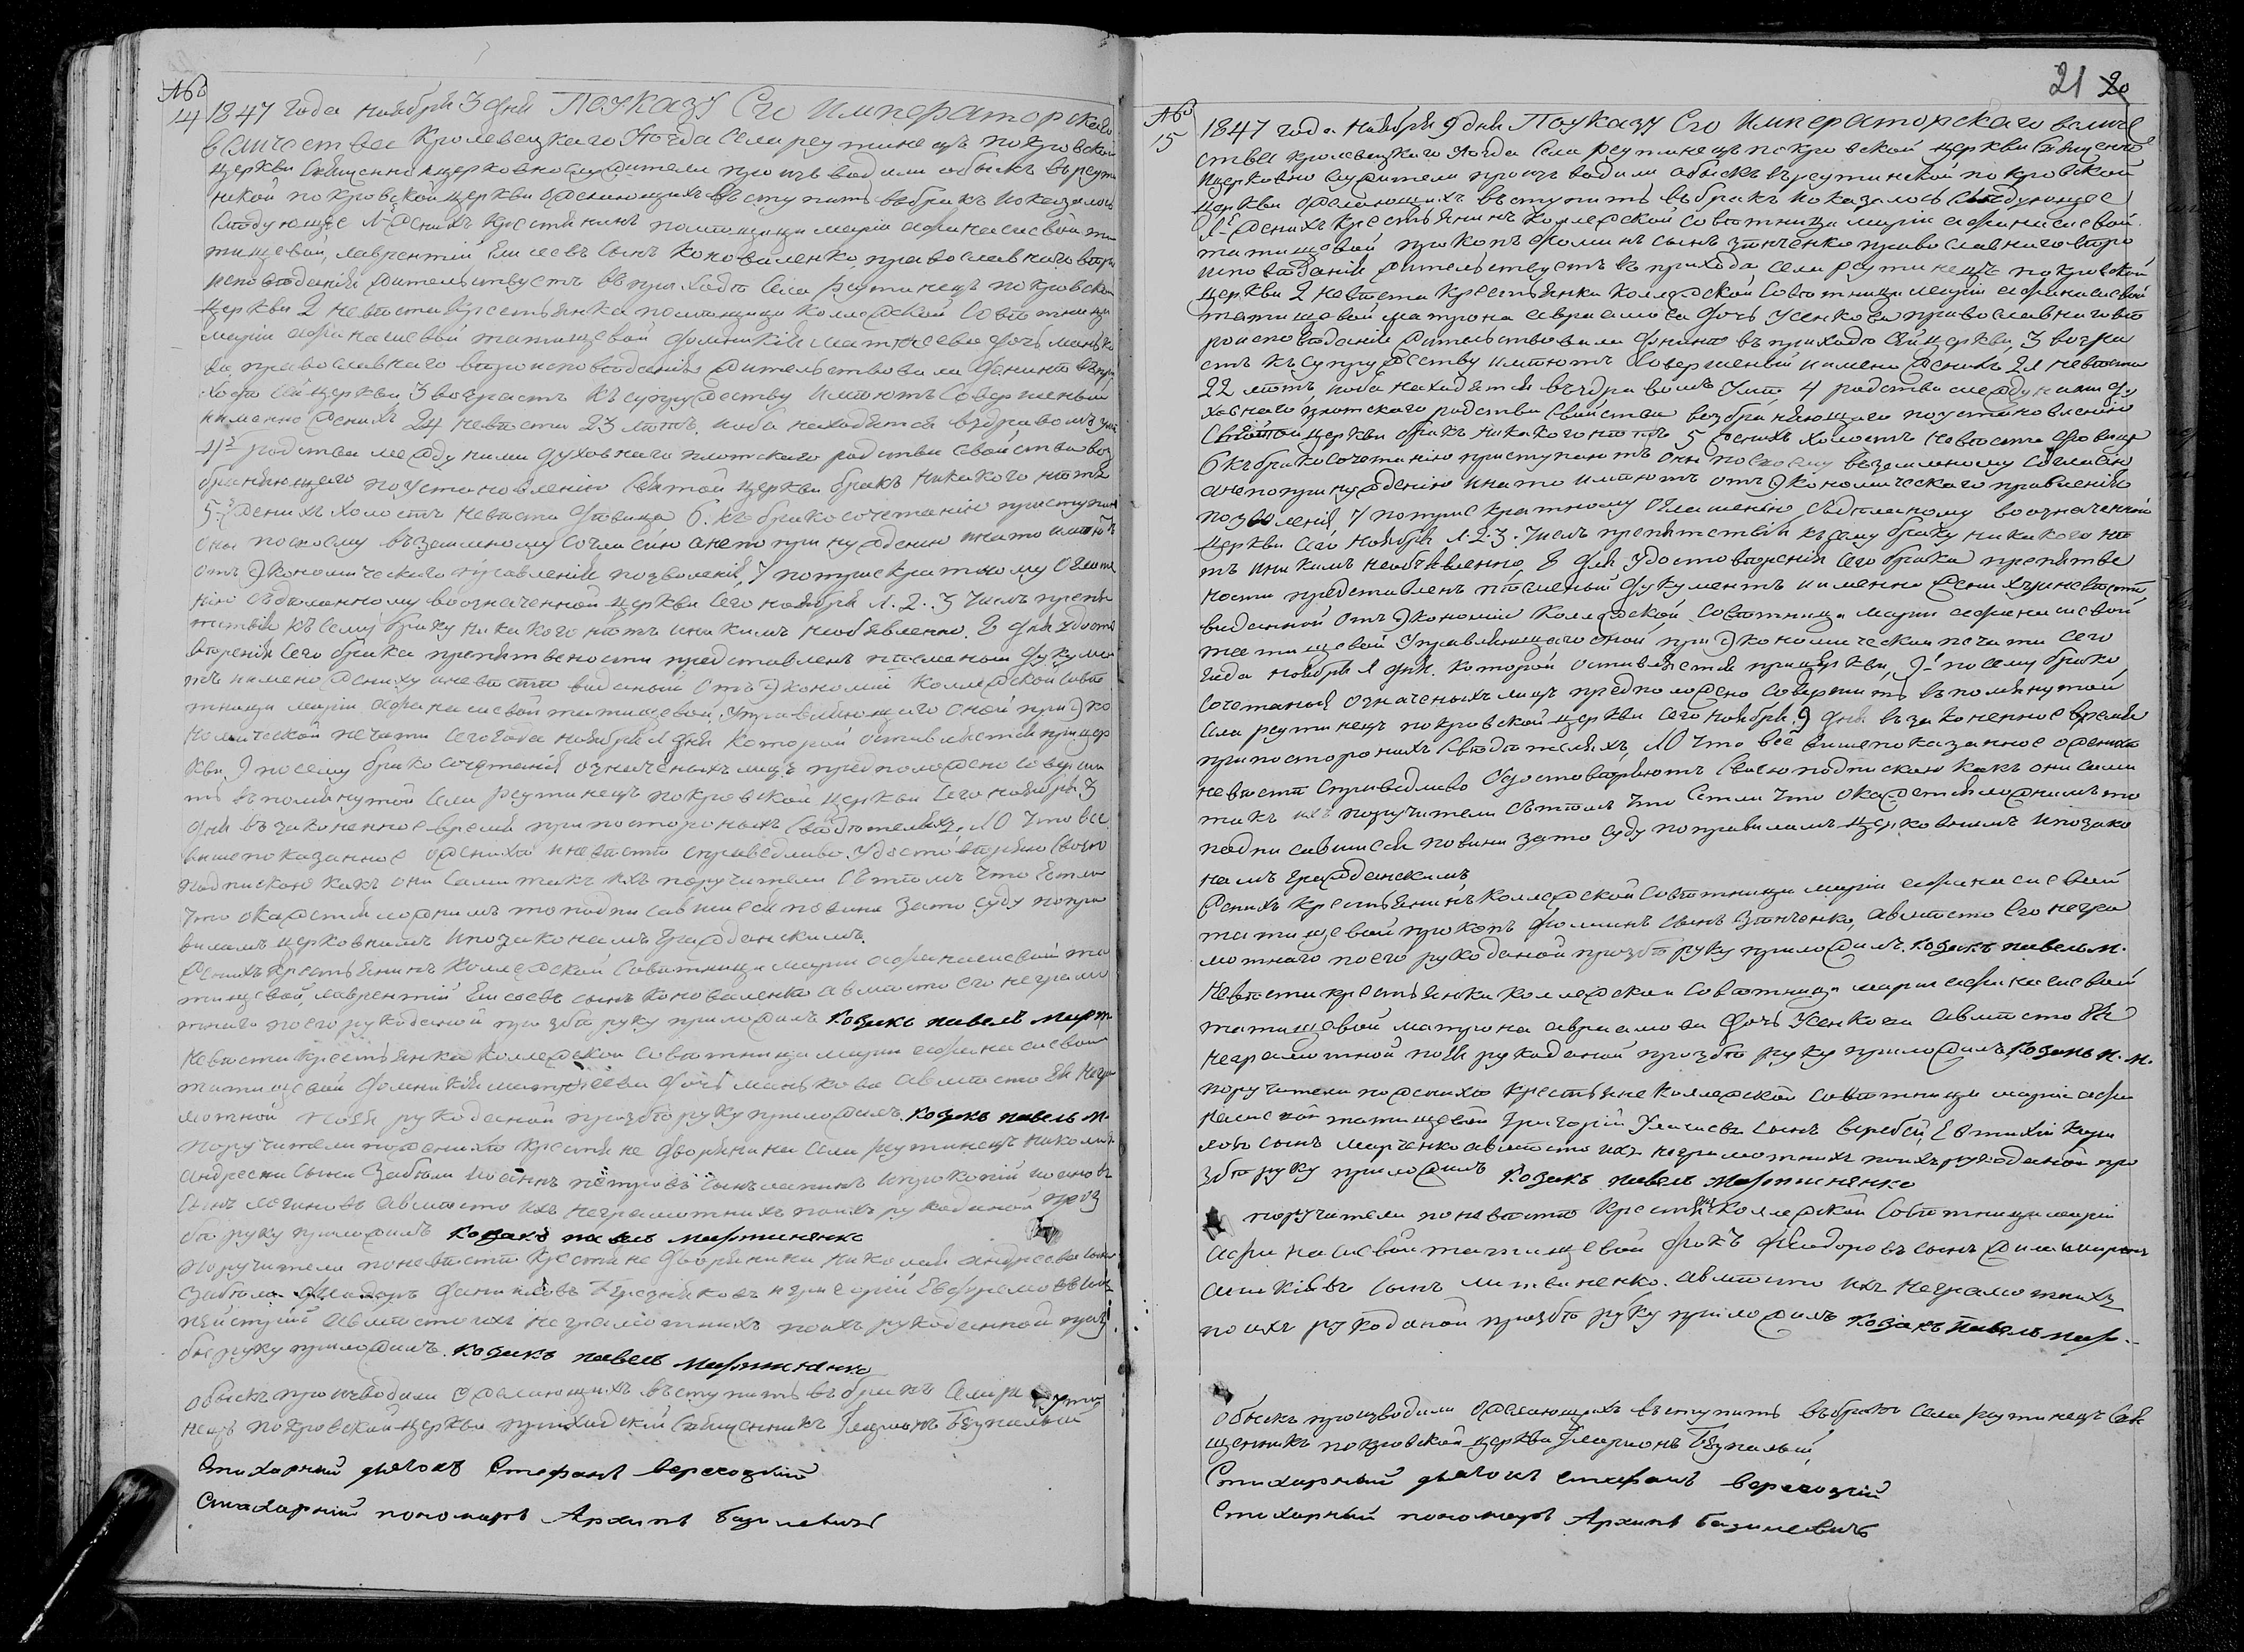 №
14 1847 года Ноября 3 дня По Указу Его Императорскаго
величества Кролевецкаго Уезда Села реутинецъ покровской
церкви священно и церковнослужители производили обыскъ вреути
нской покровской церкви ожелающихъ вступить вбракъ и оказалось
следующее 1. Женихъ крестянинъ помещици марiи афанасиевой та
тищевой, лаврентiй Елисеевъ сынъ Коноваленко, православнаго веро
исповеданiя жительствуетъ вприходе села реутинецъ покровской
церкви 2 невеста крестянка помещици колежской Советници
марiи афанасиевой татищевой домникiя матфеева дочь манько
ва, православнаго вероисповеданiя жительствовала доныне впри
ходе сей церкви, 3 возрастъ къ супружеству имеютъ совершеный
именно женихъ 24 невеста 23 летъ, иоба находятся вздравомъ уме
4е родства между ними духовнаго плотскаго родства свойства воз
браняющаго поустановленiю Святой церкви бракъ никакого нетъ
5-е женихъ холостъ невеста девица 6. къ бракосочетанiю приступаютъ
они посвоему взаемному согласiю анепопринужденiю инато имеютъ
отъ Экономическаго правленiя позволенiя, 7 потрискратному Оглаше
нiю зделанному воозначенной церкви сего ноября 1. 2. 3 числъ препя
тствiя къ сему браку никакого нетъ иникимъ необявленно. 8 для удосто
веренiя Сего брака препятвености представленъ писменый докуме
нтъ имено жениху иневесте виданый отъ Экономiи колежской Сове
тници марiи афанасиевой татищевой. Управляющаго оной при Эко
номической печати сегогода ноября 1 дня которой оставляется прицер
кви, 9 посему бракосочетанiя означеныхъ лицъ предположено соверши
ть вполянутой села реутинецъ покровской церкви Сего ноября 3
дня взаконенное время припостороныхъ свидетеляхъ, 10 Что все
вишепоказанное ожениху иневесте справедливо. Удостоверяю своею
подпискою какъ они сами такъ ихъ поручители стемъ Что Естли
Что окажется ложнимъ то подписавшиеся повини зато суду попра
виламъ церковнимъ ипозаконамъ гражданскимъ.
Женихъ крестьянинъ колежской Советници марiи афанасиевой та
тищевой, лаврентiй Елисеевъ сынъ коноваленко авместо его неграмо
тнаго поего рукоданой прозбе руку приложилъ козакъ павелъ март.
Невеста крестьянка колежской советници марiи афанасиевой
татищевой домникiя матфеева дочь манькова авместо Ея негра
мотной поея рукоданой прозбе руку приложилъ. козакъ павелъ м.
поручители пожениху крестяне дворянина села реутинецъ николая
андреева сына Забелы иоаннъ петровъ сынъ лапинъ ипрокопiй иоановъ
сынъ логиновъ авместо ихъ неграмотнихъ поихъ рукоданой проз
бе руку приложилъ козакъ павелъ мартиненко
поручители поневесте крестяне дворянина николая андреева сына
Забелы феодоръ данииловъ Бережняковъ игригорiй Евфремовъ
авместо ихъ неграмотнихъ поихъ рукоданной проз
бе руку приложилъ. козакъ павелъ мартиненко
обыскъ производили ожелающихъ вступить вбракъ села реути
нецъ покровской церкви приходскiй священникъ Iларiонъ Безпалый
Стихарный дьячокъ Стефанъ вересоцкiй
Стихарный пономаръ Архипъ базилевичъ
21 20
№
15 1847 года Ноября 9 дня По указу Его Императорскаго величе
ства кролевецкаго Уезда села реутинецъ покровской церкви священо
ицерковно служители производили обыскъ вреутинской покровской
церкви ожелающихъ вступить вбракъ иоказалось следующее
1-е Женихъ крестьянинъ колежской советници марiи афанасиевой
татищевой прокопъ фоминъ сынъ зенченко православнаго веро
исповеданiя жительствуетъ вприходе села реутинецъ покровской
церкви 2 невеста крестьянка колежской советници марiи афанасиевой
татищевой матрона авраамова дочь усенкова православнаго ве
роисповеданiя жительствовала доныне вприходе сей церкви, 3 возра
стъ къ супружеству имеютъ совершеный имено женихъ 21 невеста
22 летъ, иоба находятся вздравомъ Уме 4 родства между ними ду
ховнаго плотскаго родства свойства возбраняющаго поустановленiю
святой церкви бракъ никакого нетъ 5 женихъ холостъ невеста девица
6 къ бракосочетанiю приступаютъ они посвоему взаемному согласiю
анепопринужденiю инато имеютъ отъ Экономическаго правленiя
позволенiя 7 потрискратному Оглашенiю зделаному воозначенной
церкви сего ноября 1. 2. 3. числъ препятствiя къ сему браку никакого не
тъ иникимъ необявленно 8 для Удостоверенiя сего брака препятве
ности представленъ писменый документъ именно жениху иневесте
виданной отъ Экономiи колежской советници марiи афанасиевой
татищевой Управляющаго оной при Экономической печати сего
года ноября 1 дня. которой оставляется прицеркви, 9-е посему брако
сочетанiя означеныхъ лицъ предположено совершить вполянутой
села реутинецъ покровской церкви сего ноября 9 дня взаконенное время
припостороннихъ свидетеляхъ, 10 Что все вишепоказанное ожениху
невесте справедливо Удостоверяютъ своею подпискою какъ они сами
такъ ихъ поручители стемъ Что Естли Что окажется ложнимъ то
подписавшиеся повини зато суду поправиламъ церковнимъ ипозако
намъ гражданскимъ
Женихъ крестьянинъ колежской советници марiи афанасиевой
татищевой прокопъ фоминъ сынъ зенченко, авместо Его негра
мотнаго поего рукоданой прозбе руку приложилъ. козакъ павелъ м.
Невеста крестьянка колежской советници марiи афанасиевой
татищевой матрона авраамова дочь усенкова авместо Ея
неграмотной поея рукоданой прозбе руку приложилъ козакъ п. м.
поручители пожениху крестьяне колежской советници марiи афа
насиевой татищевой григорiй Улясиевъ сынъ веребей, Евтихiй кири
ловъ сынъ марченко авместо ихъ неграмотнихъ поихъ рукоданой про
збе руку приложилъ козакъ павелъ мартиненко
поручители поневесте крестяне колежской советници марiи
афанасиевой татищевой фокъ феодоровъ сынъ
сынъ литвиненко. авместо ихъ неграмотнихъ
поихъ рукоданой прозбе руку приложилъ козакъ павелъ мар.
обыскъ производили ожелающихъ вступить вбракъ села реутинецъ свя
щенникъ покровской церкви Iларионъ Безпалый
Стихарный дьячокъ стефанъ вересоцкiй
Стихарный пономаръ Архипъ базилевичъ